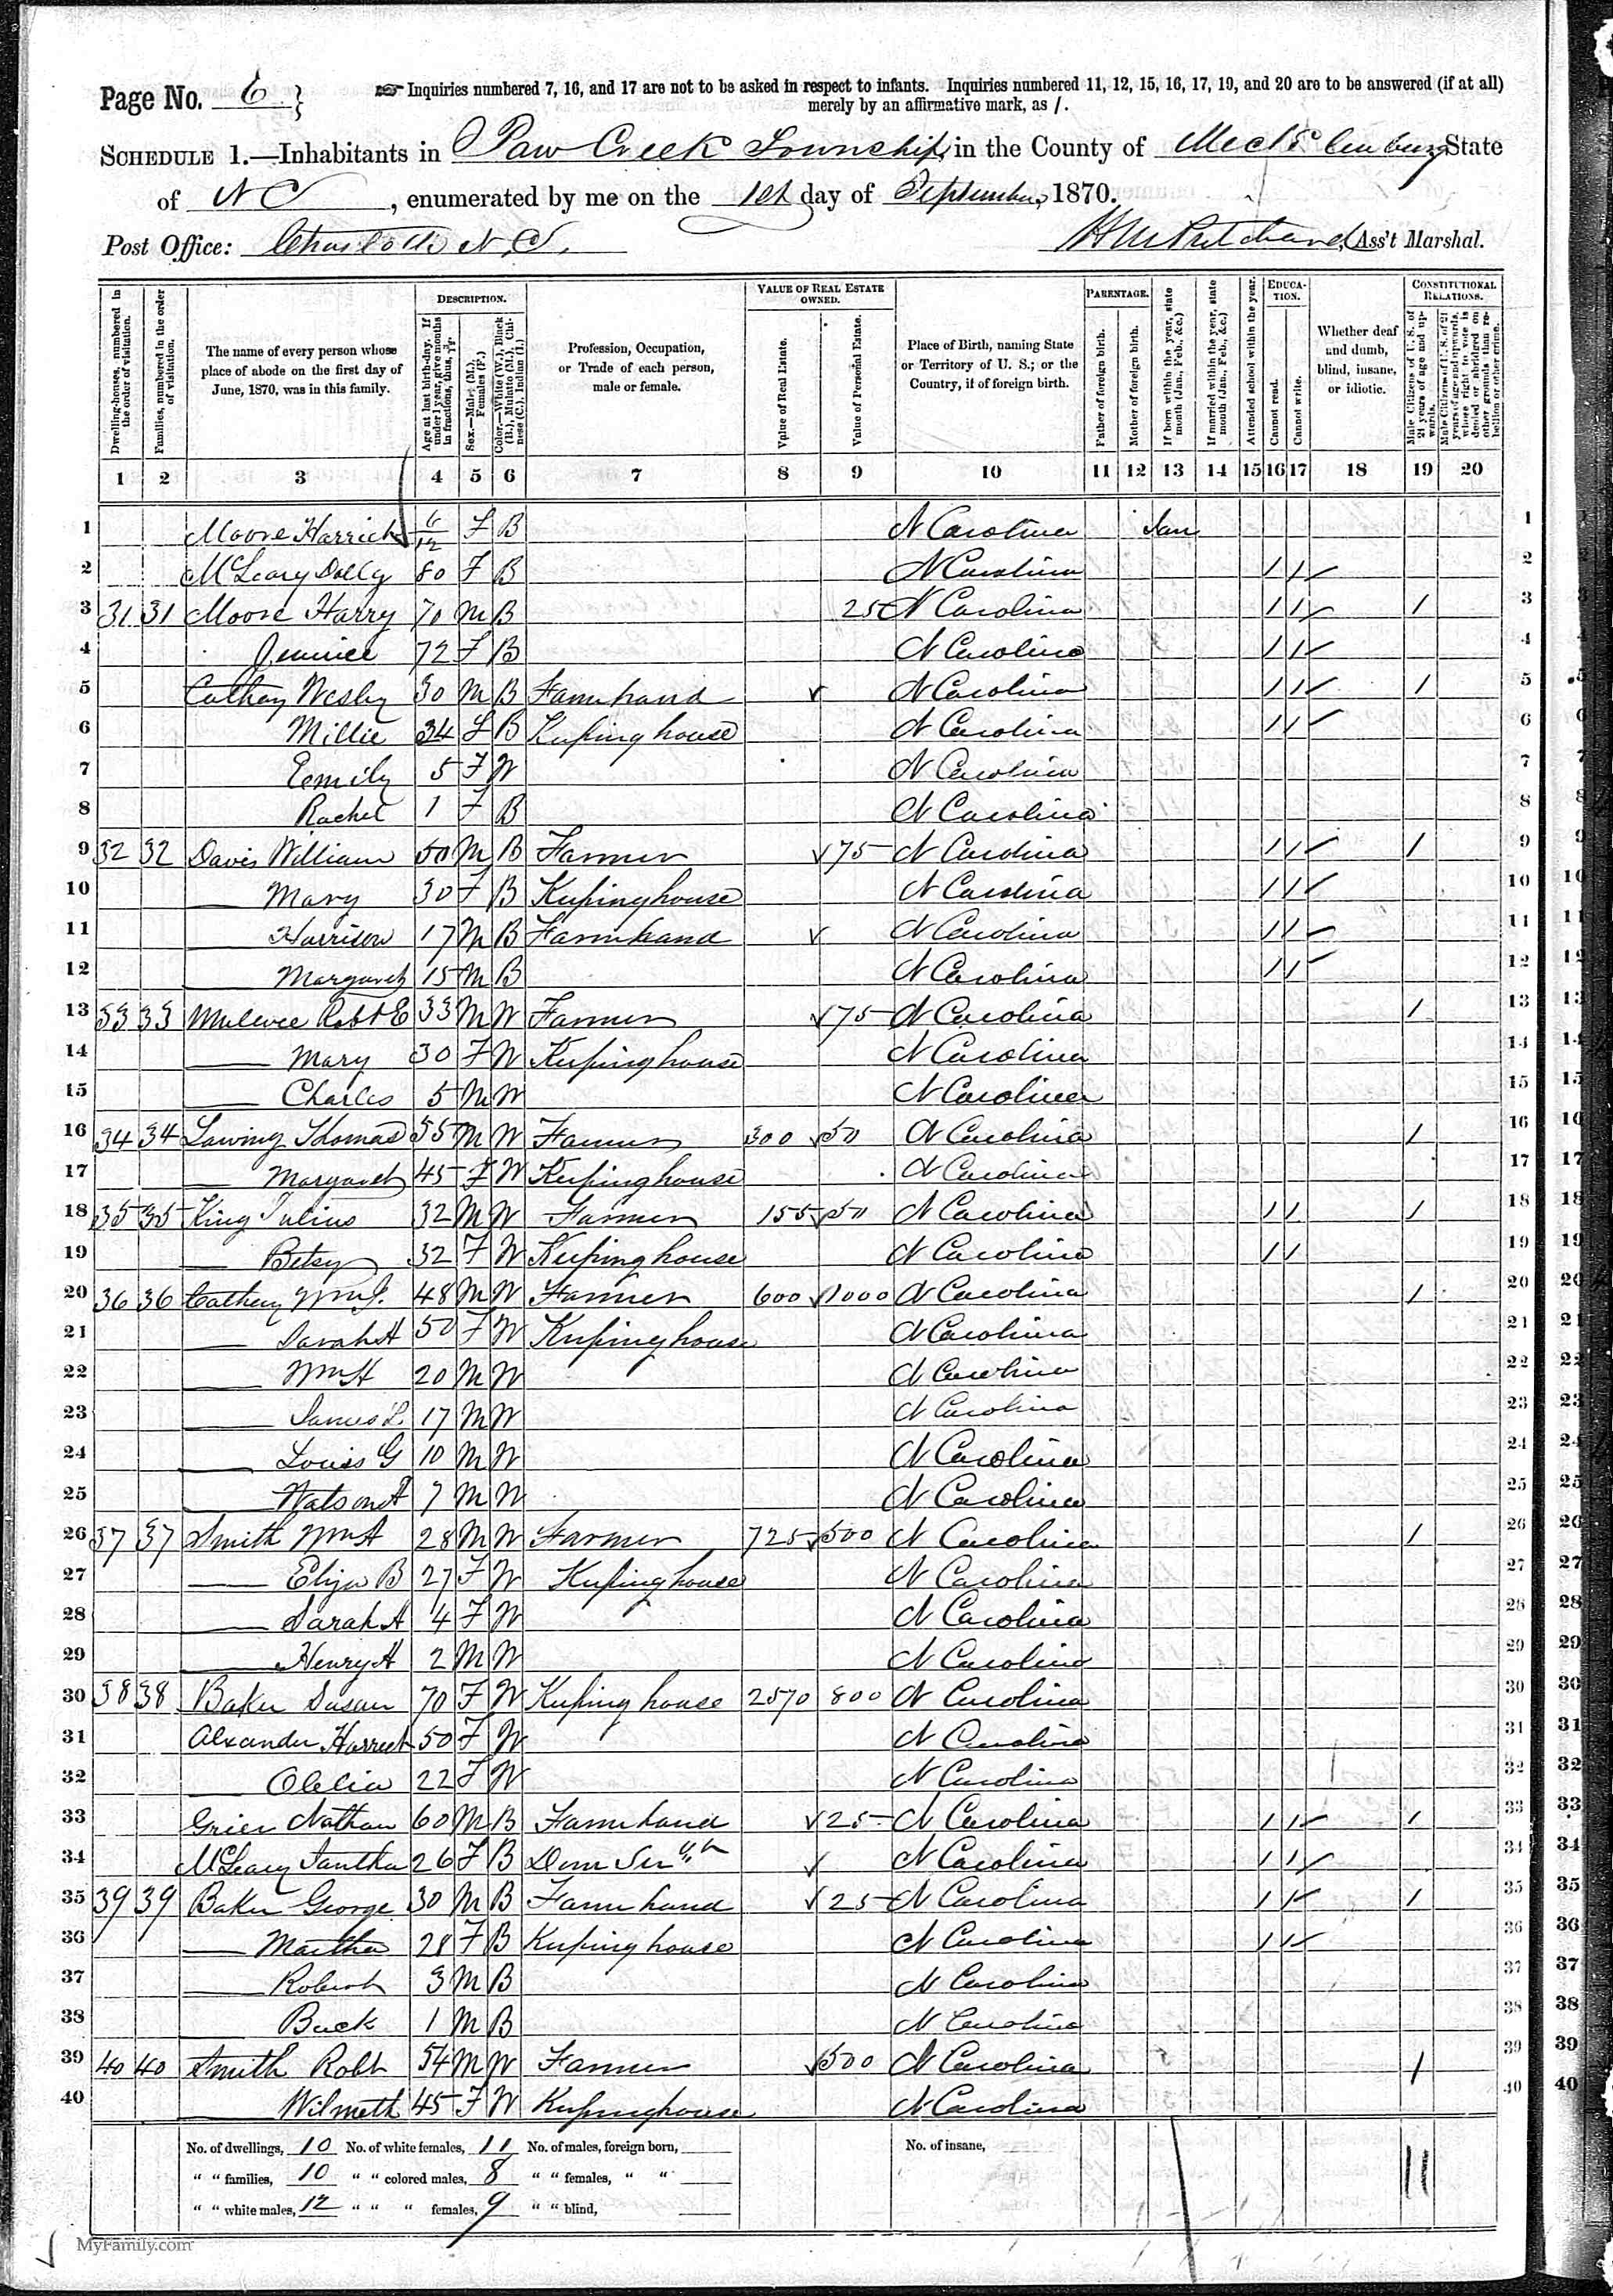 Page No. 6 } ☞ Inquiries numbered 7, 16, and 17 are not to be asked in respect to infants. Inquiries numbered 11, 12, 15, 16, 17, 19, and 20 are to be answered (if at all)
merely by an affirmative mark, as /.
SCHEDULE 1.—Inhabitants in Paw Creek Township, in the County of Mecklenburg State
of N C, enumerated by me on the 1st day of September, 1870.
Post Office: Charlotte N.C. Ass't Marshal.
DESCRIPTION. VALUE OF REAL ESTATE OWNED. PARENTAGE. EDUCATION. CONSTITUTIONAL RELATIONS.
Dwelling-houses, numbered in the order of visitation.
Families, numbered in the order of visitation.
The name of every person whose place of abode on the first day of June, 1870, was in this family.
Age at last birth-day. If under 1 year, give months in fractions, thus, 3/12.
Sex.—Males (M.), Females (F.)
Color.—White (W.), Black (B.), Mulatto (M.), Chinese (C.), Indian (I.)
Profession, Occupation, or Trade of each person, male or female.
Value of Real Estate.
Value of Personal Estate.
Place of Birth, naming State or Territory of U. S.; or the Country, if of foreign birth.
Father of foreign birth.
Mother of foreign birth.
If born within the year, state month (Jan., Feb., &c.)
If married within the year, state month (Jan., Feb., &c.)
Attended school within the year.
Cannot read.
Cannot write.
Whether deaf and dumb, blind, insane, or idiotic.
Male Citizens of U. S. of 21 years of age and upwards.
Male Citizens of U. S. of 21 years of age and upwards, whose right to vote is denied or abridged on other grounds than rebellion or other crime.
1 2 3 4 5 6 7 8 9 10 11 12 13 14 15 16 17 18 19 20
1 Moore Harriet 6/12 F B N Carolina Jan 1
2 McLeary Dolly 80 F B N Carolina / / 2
3 31 31 Moore Harry 70 M B 25 N Carolina / / / 3
4 72 F B N Carolina / / 4
5 Cathey Wesley 30 M B Farm hand N Carolina / / / 5
6 Millie 34 F B Keeping house N Carolina / / 6
7 Emily 5 F W N Carolina 7
8 Rachel 1 F B N Carolina 8
9 32 32 Davis William 50 M B Farmer 75 N Carolina / / / 9
10 Mary 30 F B Keeping house N Carolina / / 10
11 Harrison 17 M B Farm hand N Carolina / / 11
12 Margaret 15 M B N Carolina / / 12
13 33 33 Robt E 33 M W Farmer 75 N Carolina / 13
14 Mary 30 F W Keeping house N Carolina 14
15 Charles 5 M W N Carolina 15
16 34 34 Lawing Thomas 55 M W Farmer 300 50 N Carolina / 16
17 Margaret 45 F W Keeping house N Carolina 17
18 35 35 King Julius 32 M W Farmer 155 50 N Carolina / / / 18
19 Betsy 32 F W Keeping house N Carolina / / 19
20 36 36 Cathey Wm J. 48 M W Farmer 600 1000 N Carolina / 20
21 Sarah A 50 F W Keeping house N Carolina 21
22 Wm H 20 M W N Carolina 22
23 James L 17 M W N Carolina 23
24 Louis G 10 M W N Carolina 24
25 Watson A 7 M W N Carolina 25
26 37 37 Smith Wm A 28 M W Farmer 725 500 N Carolina / 26
27 Eliza B 27 F W Keeping house N Carolina 27
28 Sarah A 4 F W N Carolina 28
29 Henry A 2 M W N Carolina 29
30 38 38 Baker Susan 70 F W Keeping house 2570 800 N Carolina 30
31 Alexander Harriet 50 F W N Carolina 31
32 22 F W N Carolina 32
33 Grier Nathan 60 M B Farm hand 25 N Carolina / / / 33
34 McLeary 26 F B Dom Ser N Carolina / / 34
35 39 39 Baker George 30 M B Farm hand 25 N Carolina / / / 35
36 Martha 28 F B Keeping house N Carolina / / 36
37 Robert 3 M B N Carolina 37
38 Buck 1 M B N Carolina 38
39 40 40 Smith Robt 54 M W Farmer 500 N Carolina / 39
40 Wilmeth 45 F W Keeping house N Carolina 40
No. of dwellings, 10 No. of white females, 11 No. of males, foreign born, No. of insane, 11
" " families, 10 " " colored males, 8 " " females, " "
" " white males, 12 " " " females, 9 " " blind,
MyFamily.com